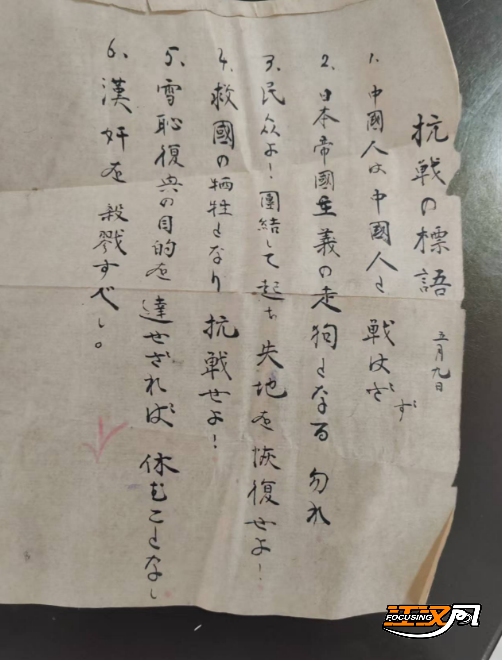 抗戰の標語
五月九日
1. 中國人は中國人と戰はず
ず
2. 日本帝國主義の走狗となる勿れ
3. 民众よ!團結して起ち失地を恢復せよ!
4. 救國の犠牲となり抗戰せよ!
5. 雪恥復興の目的を達せざれば休むことなし
6. 漢奸を殺戮すべし。
FOCUSING
江汉网